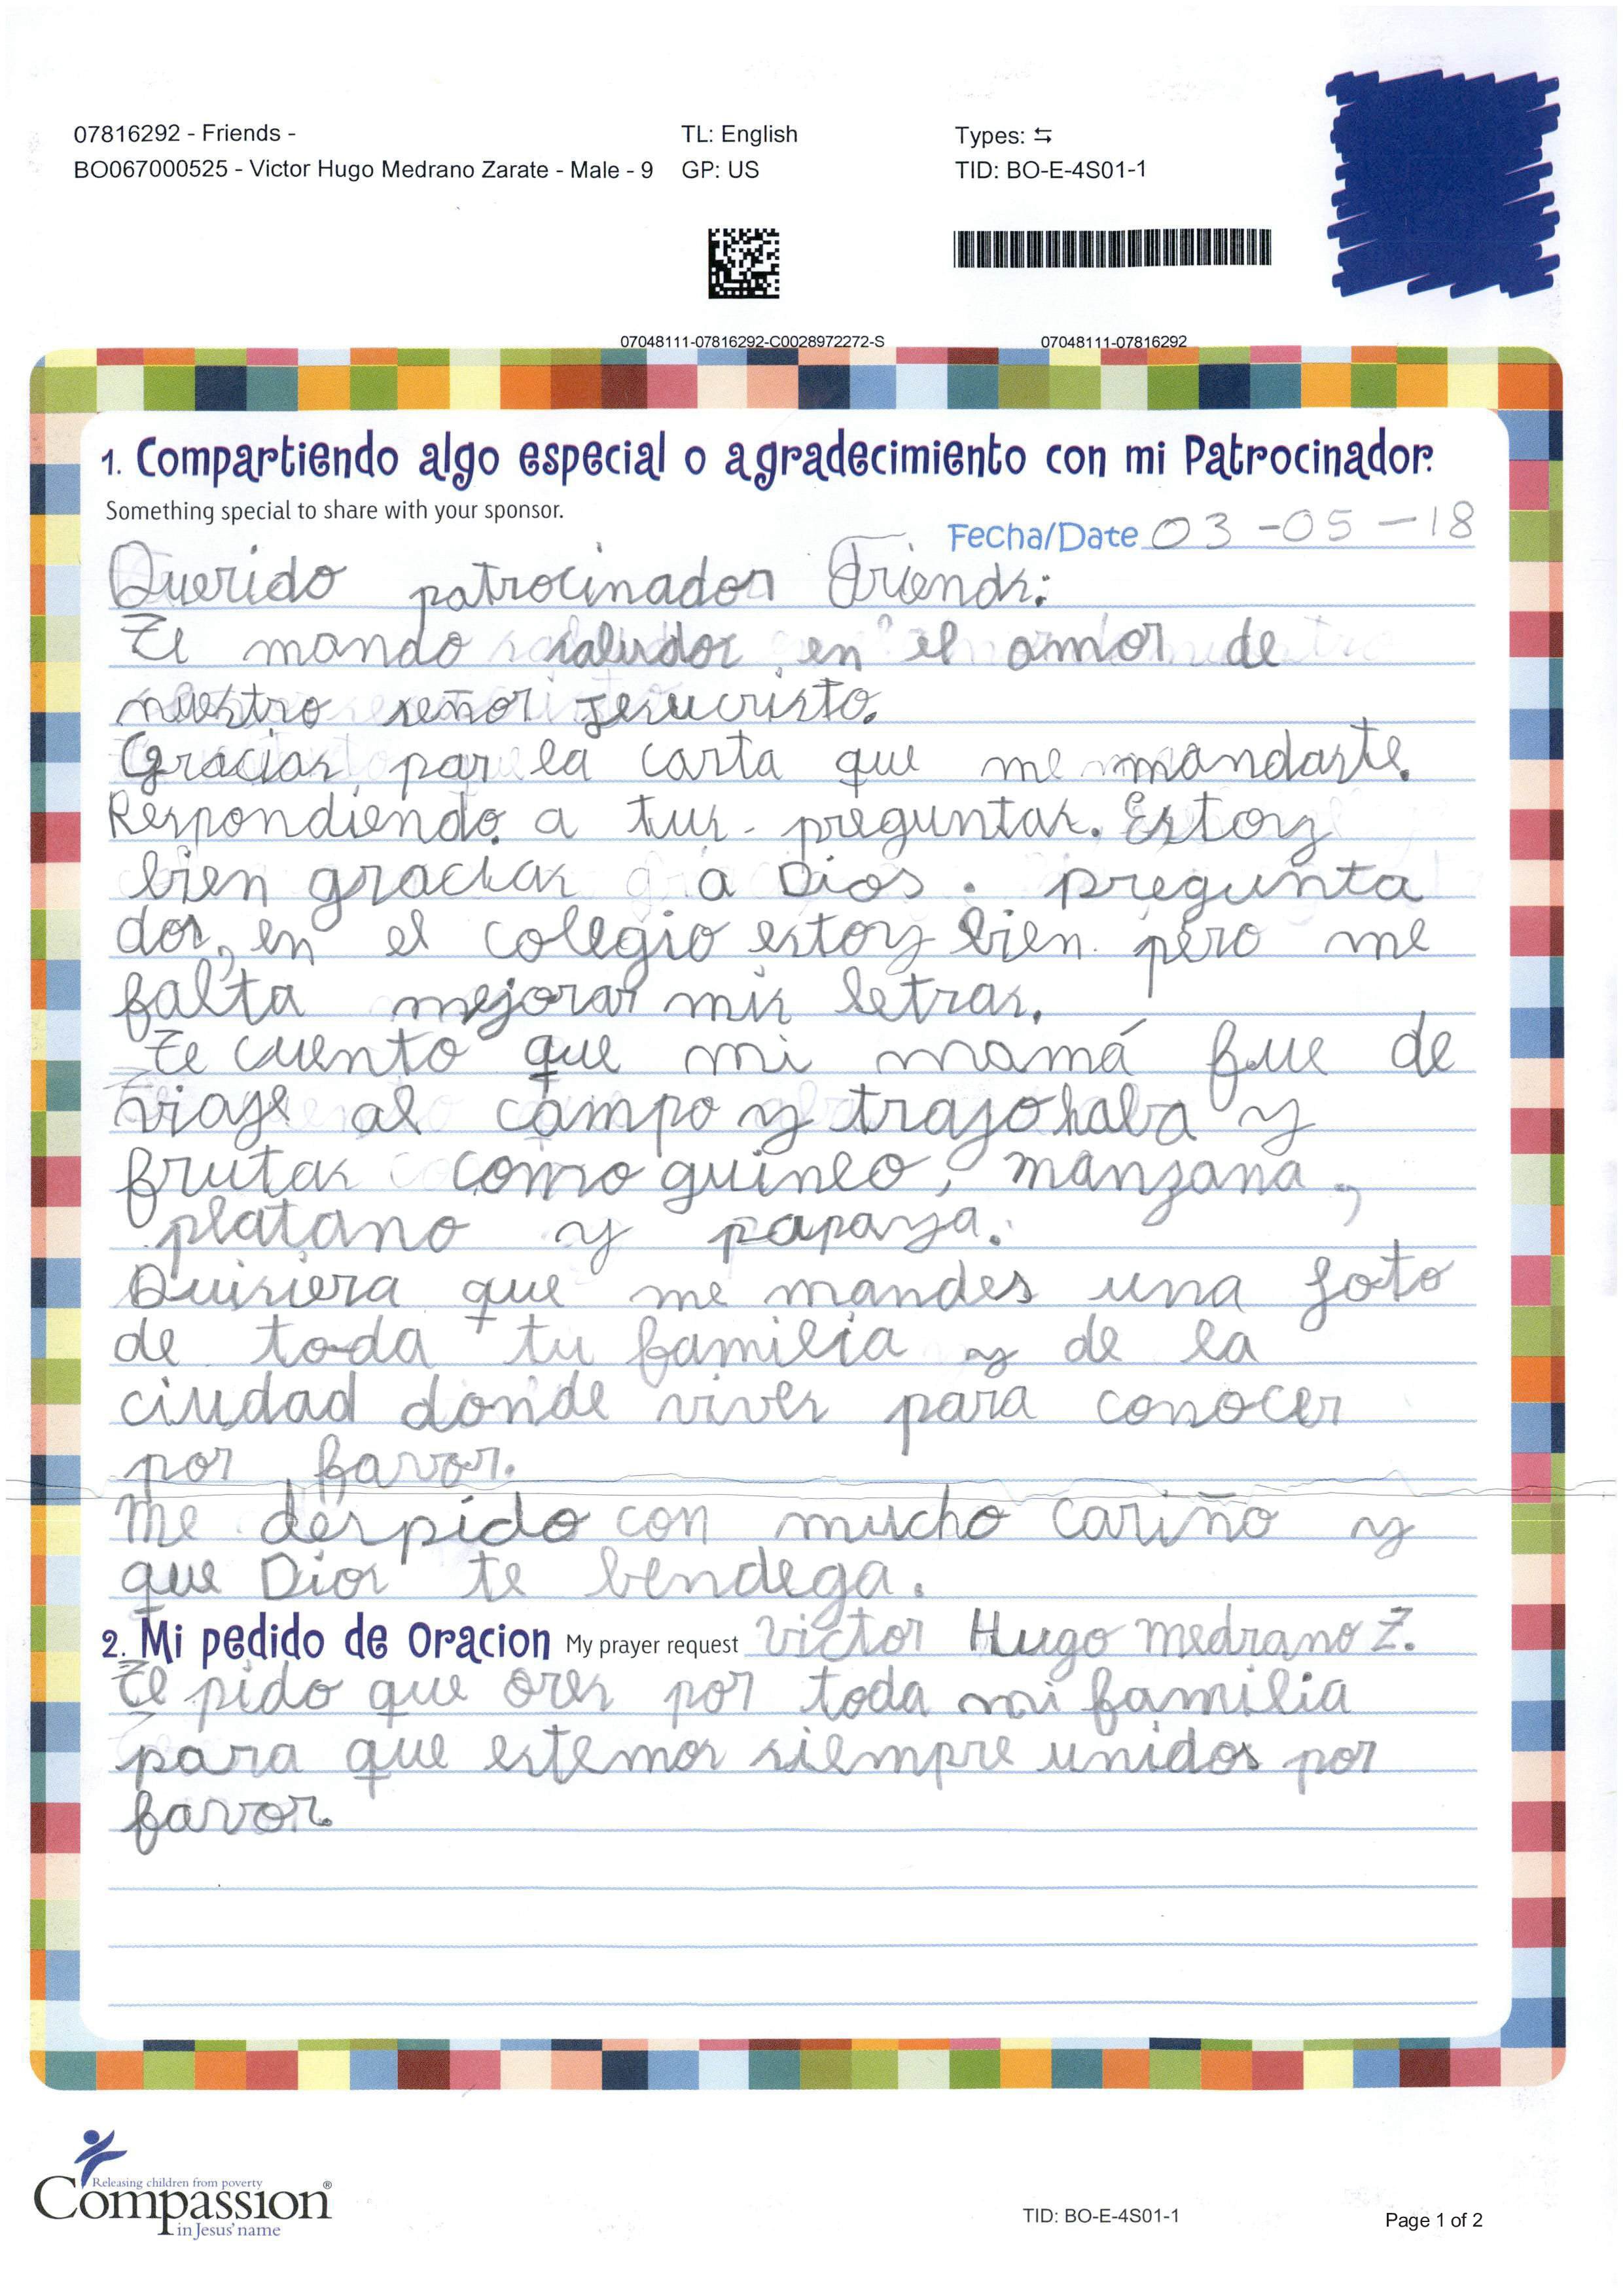 07816292 - Friends -
TL: English
Types: ⇆
BO067000525 - Victor Hugo Medrano Zarate - Male - 9
GP: US
TID: BO-E-4S01-1
07048111-07816292-C0028972272-S
07048111-07816292
1. Compartiendo algo especial o agradecimiento con mi Patrocinador.
Something special to share with your sponsor.
Fecha/Date 03-05-18
Querido patrocinador Friends:
Te mando saludos en el amor de
nuestro señor jesucristo.
Gracias por la carta que me mandaste.
Respondiendo a tus preguntas. Estoy
bien gracias a Dios. pregunta
dos, en el colegio estoy bien pero me
falta mejorar mis letras.
Te cuento que mi mamá fue de
viaje al campo y trajo haba y
frutas como guineo, manzana,
platano y papaya.
Quisiera que me mandes una foto
de toda tu familia y de la
ciudad donde vives para conocer
por favor.
me despido con mucho cariño y
que Dios te bendega.
2. Mi pedido de Oracion My prayer request Victor Hugo medrano Z.
Te pido que ores por toda mi familia
para que estemos siempre unidos por
favor.
Releasing children from poverty
Compassion®
in Jesus' name
TID: BO-E-4S01-1
Page 1 of 2